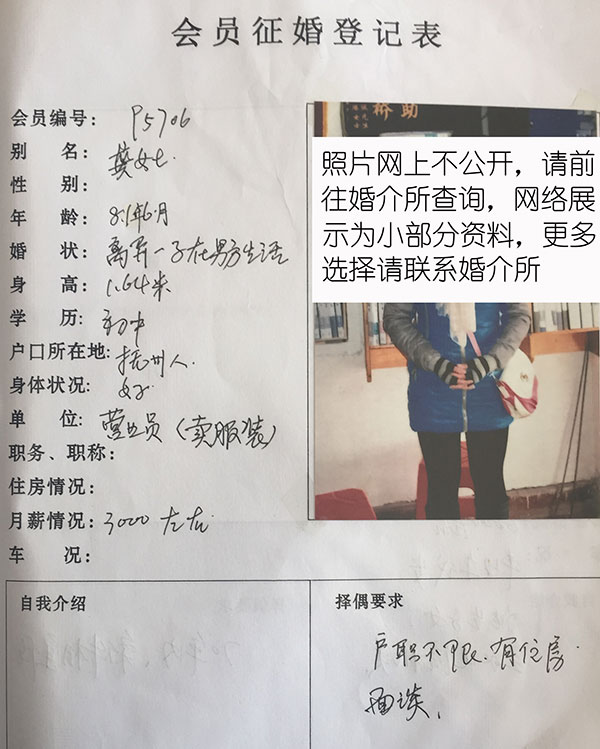 会员征婚登记表
会员编号： P5706
别　　名： 龚女士.
性　　别：
年　　龄： 81年6月
婚　　状： 离异一子在男方生活
身　　高： 1.64米
学　　历： 初中
户口所在地： 抚州人.
身体状况： 好.
单　　位： 营业员（卖服装）
职务、职称：
住房情况：
月薪情况： 3000左右
车　　况：
助
桥
照片网上不公开，请前
往婚介所查询，网络展
示为小部分资料，更多
选择请联系婚介所
自我介绍
择偶要求
户职不限.有住房.
面谈.